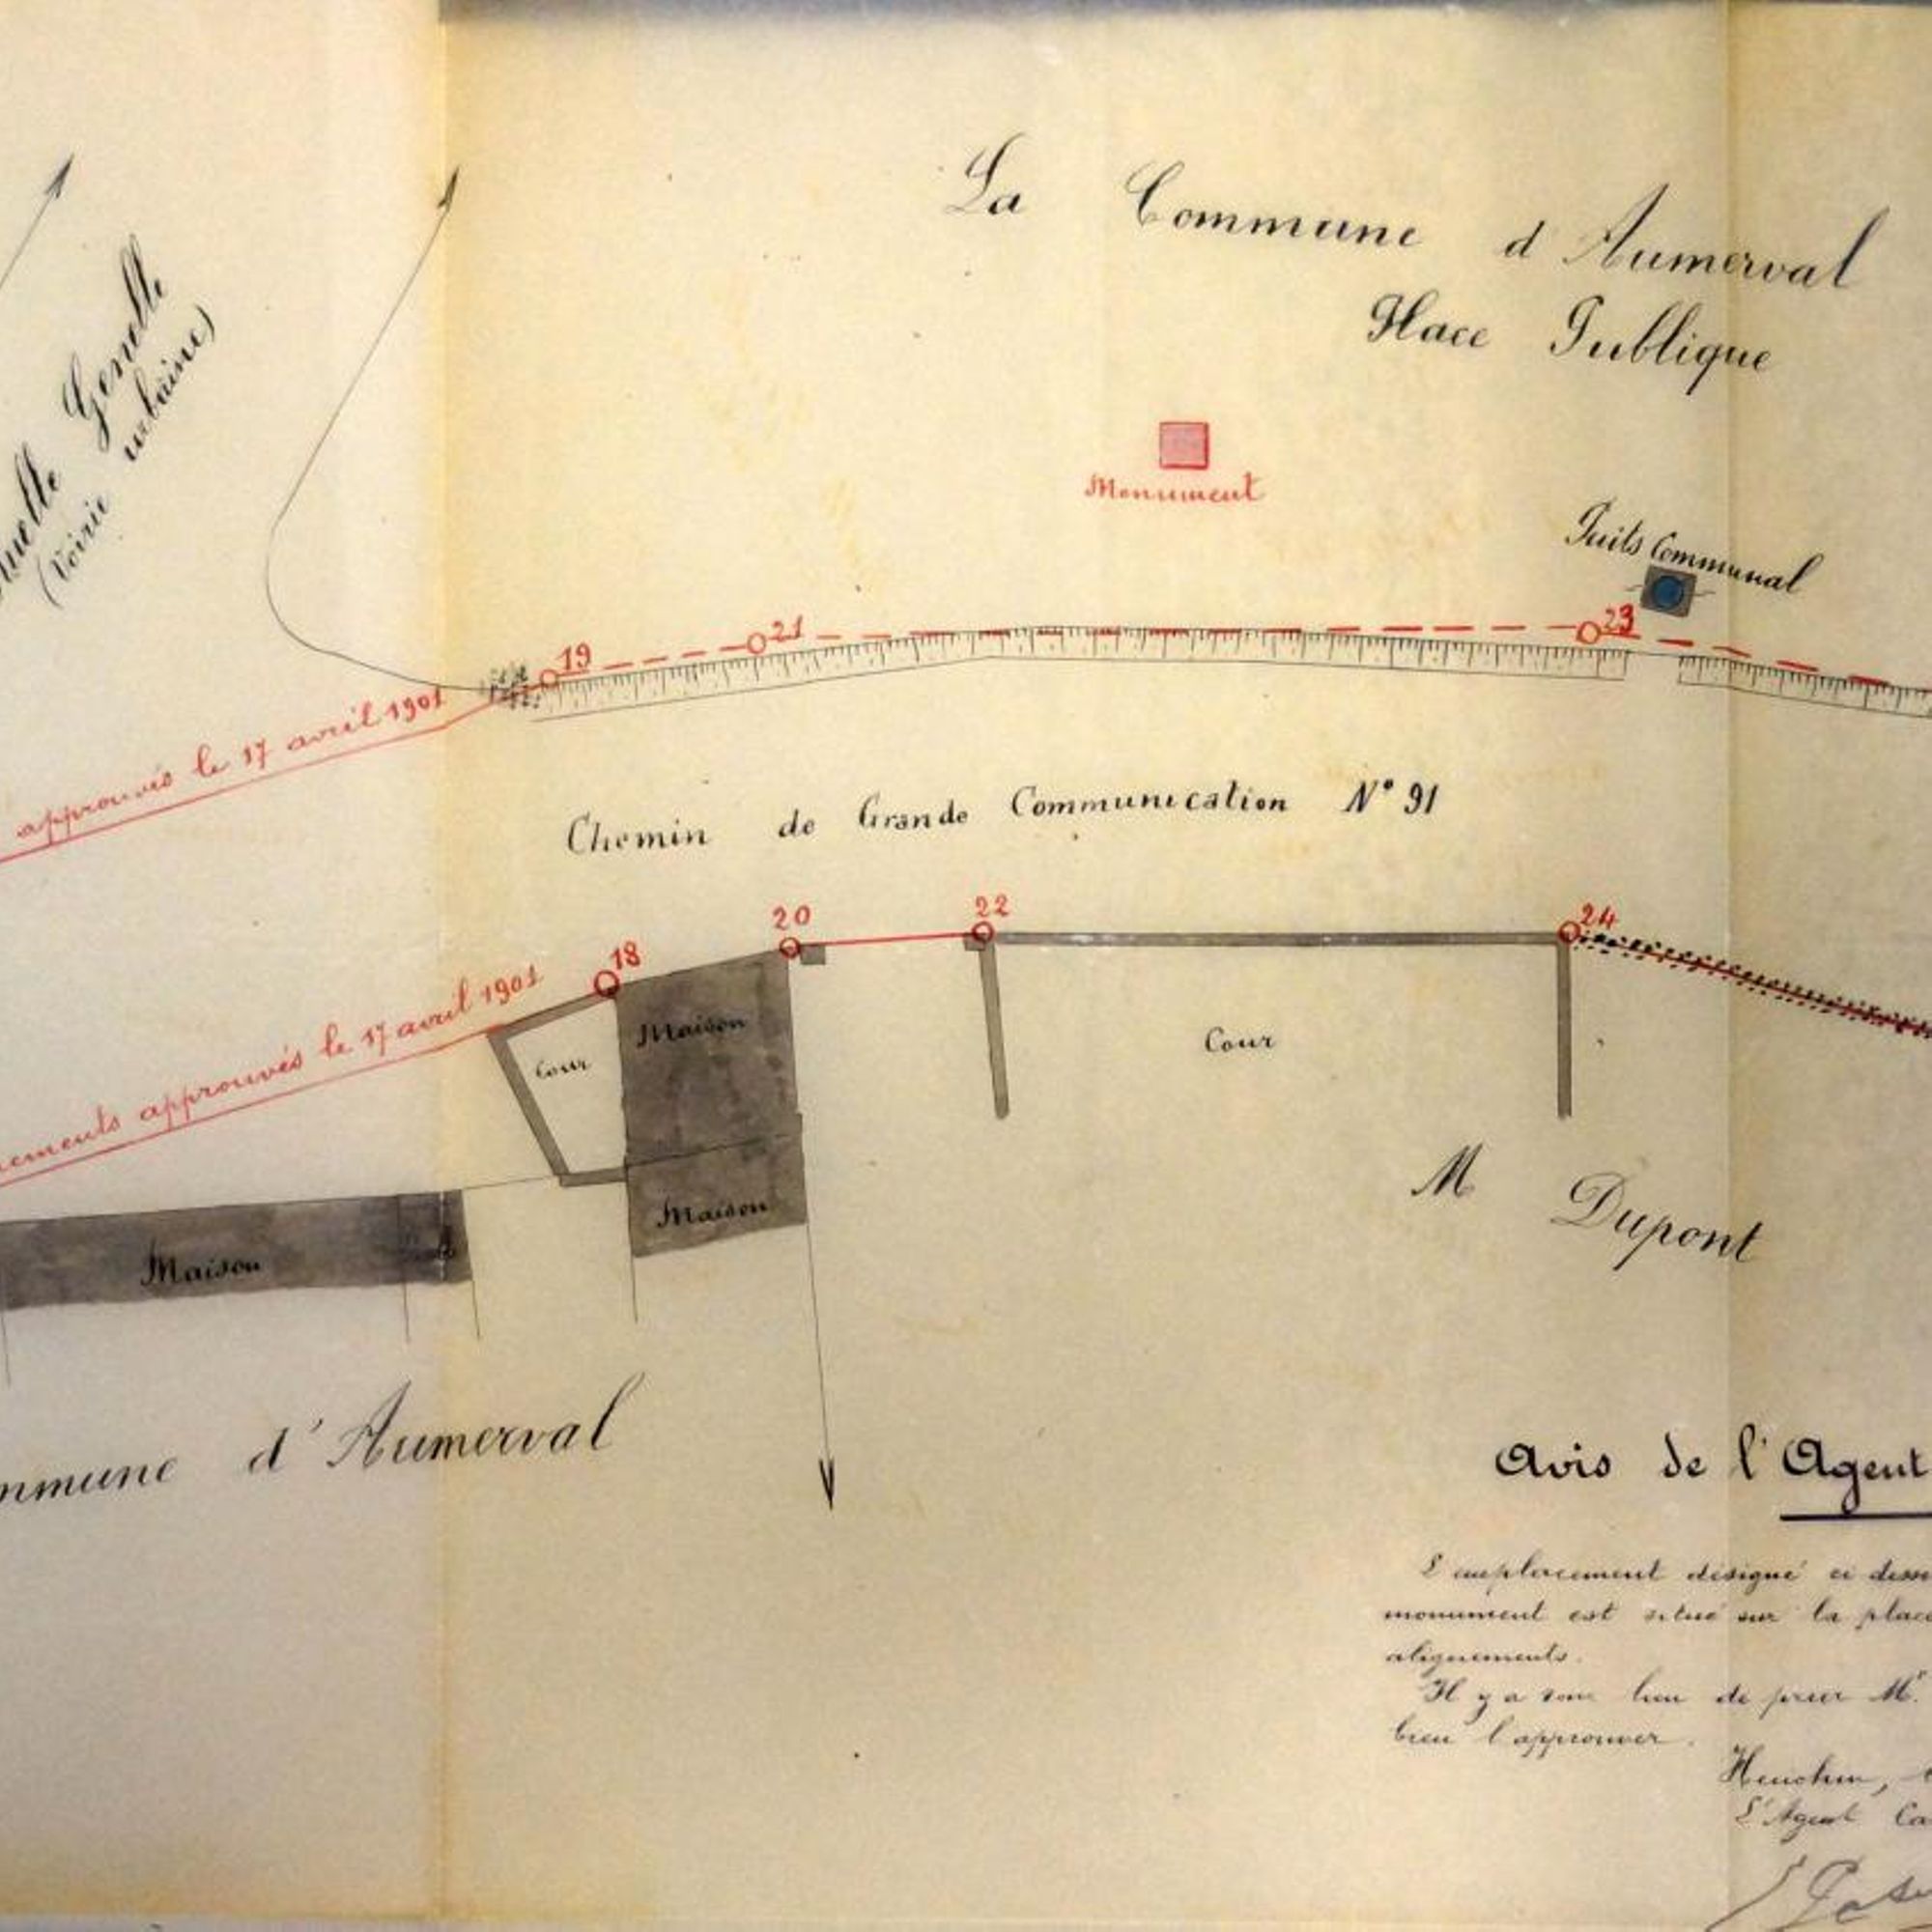 La Commune d'Aumerval
Place Publique
Gomelle
(Voirie urbaine)
Monument
Puits Communal
19
21
23
approuvés le 17 avril 1901
Chemin de Grande Communication N° 91
18
20
22
24
ements approuvés le 17 avril 1901
Cour
Maison
Cour
Maison
Maison
M Dupont
mmune d'Aumerval
Avis de l'Agent
L'emplacement désigné ci dess
monument est situé sur la place
alignements.
Il y a donc lieu de prier Mr.
bien l'approuver.
Heuchin,
L'Agent Ca